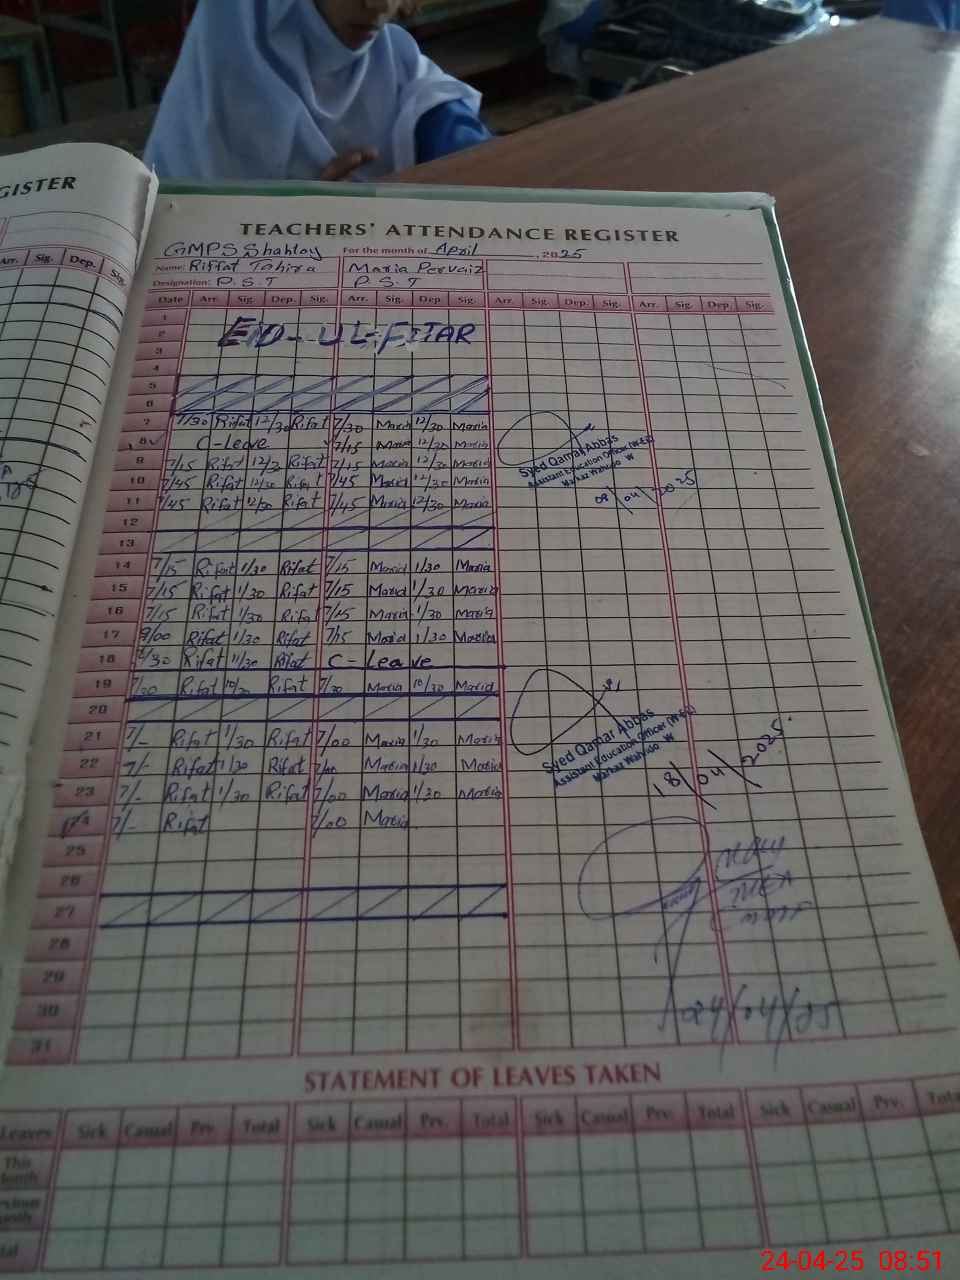 GISTER
Arr. Sig. Dep. Sig.
TEACHERS' ATTENDANCE REGISTER
GMPS Shahtoy For the month of April, 2025
Name: Riffat Tahira Maria Pervaiz
Designation: P.S.T P.S.T
Date Arr. Sig. Dep. Sig. Arr. Sig. Dep. Sig. Arr. Sig. Dep. Sig. Arr. Sig. Dep. Sig.
1
2 EID-UL-FITAR
3
4
5
6
7 7/30 Rifat 12/30 Rifat 7/30 Maria 12/30 Maria
8 C-Leave 7/15 Maria 12/30 Maria
9 7/15 Rifat 12/3 Rifat 7/15 Maria 12/30 Maria
10 7/45 Rifat 12/30 Rifat 7/45 Maria 12/30 Maria
11 7/45 Rifat 12/30 Rifat 7/45 Maria 12/30 Maria
Syed Qamar Abbas
Assistant Education Officer (W-EE)
08/04/2025
12
13
14 7/15 Rifat 1/30 Rifat 7/15 Maria 1/30 Maria
15 7/15 Rifat 1/30 Rifat 7/15 Maria 1/30 Maria
16 7/15 Rifat 1/30 Rifat 7/15 Maria 1/30 Maria
17 9/00 Rifat 1/30 Rifat 7/15 Maria 1/30 Maria
18 /30 Rifat 11/30 Rifat C-Leave
19 7/30 Rifat 10/30 Rifat 7/30 Maria 10/30 Maria
20
21 7/- Rifat 1/30 Rifat 7/00 Maria 1/30 Maria
22 7/- Rifat 1/30 Rifat 7/00 Maria 1/30 Maria
23 7/- Rifat 1/30 Rifat 7/00 Maria 1/30 Maria
24 7/- Rifat 7/00 Maria
Syed Qamar Abbas
Assistant Education Officer (W-EE)
18/04/2025
25
26
27
28
29
30
31
24/04/25
STATEMENT OF LEAVES TAKEN
Leaves Sick Casual Prv. Total Sick Casual Prv. Total Sick Casual Prv. Total Sick Casual Prv. Total
This
Month
24-04-25 08:51